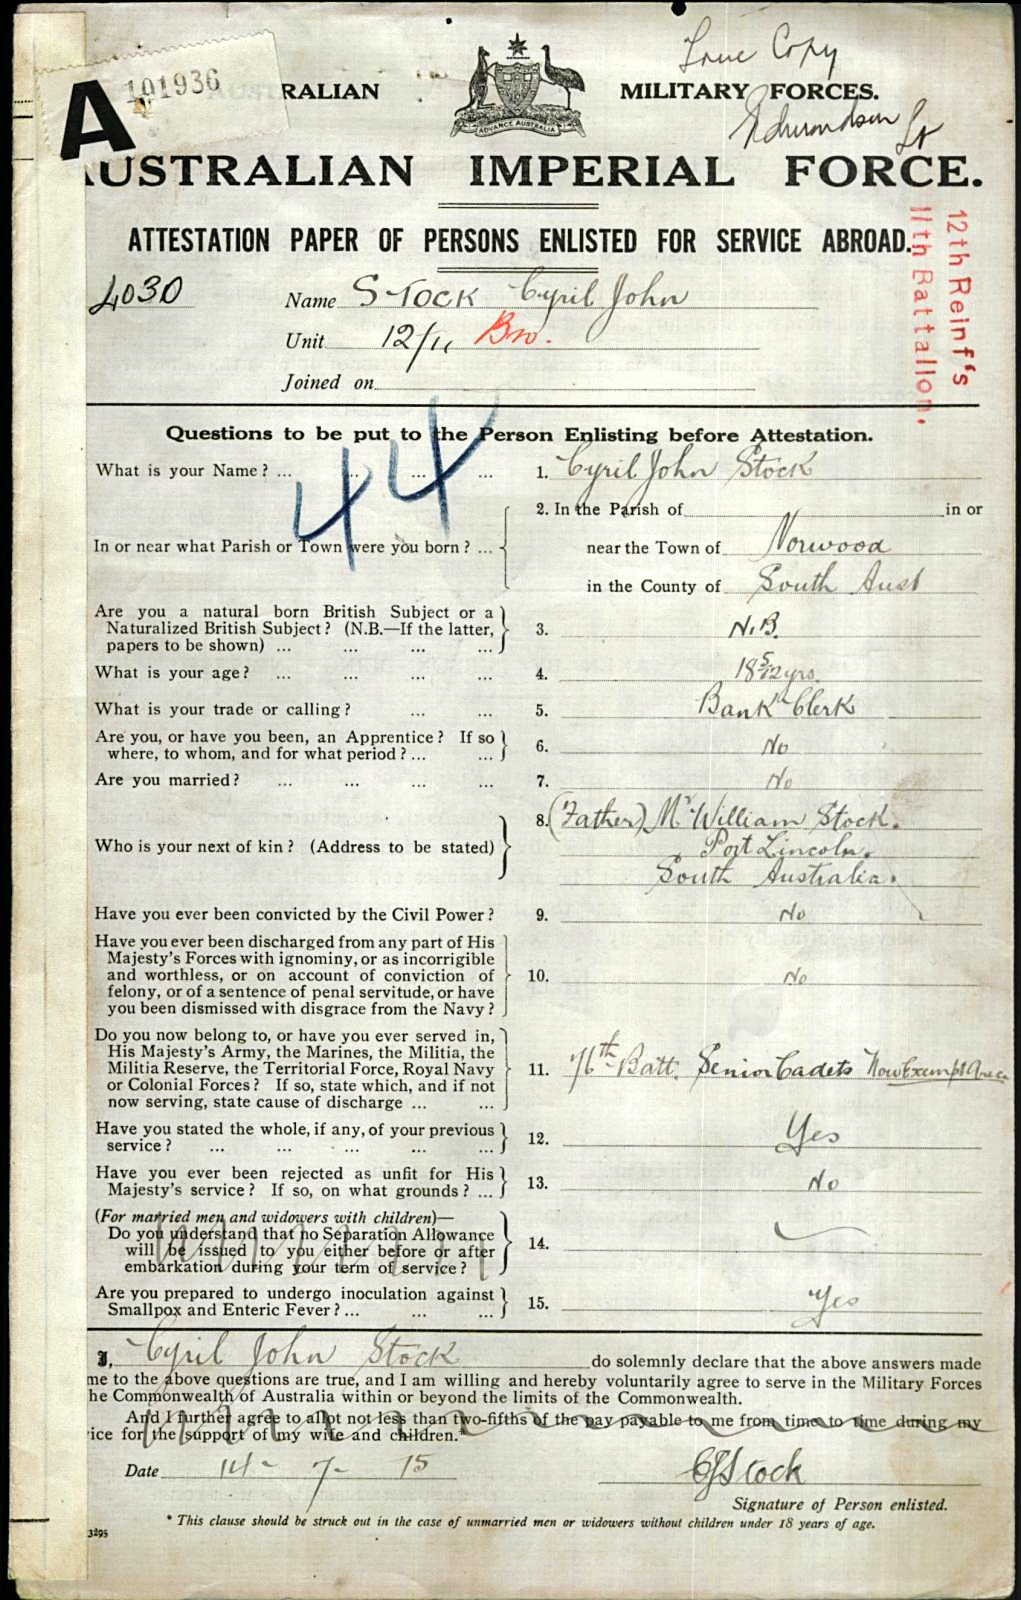 A 101936
True Copy
RALIAN MILITARY FORCES.
ADVANCE AUSTRALIA
Edmondson Lt
AUSTRALIAN IMPERIAL FORCE.
ATTESTATION PAPER OF PERSONS ENLISTED FOR SERVICE ABROAD.
12th Reinf's
11th Battalion.
4030 Name STOCK Cyril John
Unit 12/11 Bn.
Joined on
44
Questions to be put to the Person Enlisting before Attestation.
What is your Name? ... ... ... ... 1. Cyril John Stock
2. In the Parish of in or
In or near what Parish or Town were you born? ... near the Town of Norwood
in the County of South Aust
Are you a natural born British Subject or a
Naturalized British Subject? (N.B.—If the latter, 3. N.B.
papers to be shown) ... ... ... ...
What is your age? ... ... ... ... 4. 18 5/12 yrs.
What is your trade or calling? ... ... 5. Bank Clerk
Are you, or have you been, an Apprentice? If so 6. No
where, to whom, and for what period? ... ...
Are you married? ... ... ... ... 7. No
8. (Father) Mr William Stock.
Who is your next of kin? (Address to be stated) Port Lincoln.
South Australia.
Have you ever been convicted by the Civil Power? 9. No
Have you ever been discharged from any part of His
Majesty's Forces with ignominy, or as incorrigible
and worthless, or on account of conviction of 10. No
felony, or of a sentence of penal servitude, or have
you been dismissed with disgrace from the Navy?
Do you now belong to, or have you ever served in,
His Majesty's Army, the Marines, the Militia, the
Militia Reserve, the Territorial Force, Royal Navy 11. 76th Batt. Senior Cadets Now Exempt Area
or Colonial Forces? If so, state which, and if not
now serving, state cause of discharge ... ...
Have you stated the whole, if any, of your previous 12. Yes
service? ... ... ... ... ...
Have you ever been rejected as unfit for His 13. No
Majesty's service? If so, on what grounds? ...
(For married men and widowers with children)—
Do you understand that no Separation Allowance 14.
will be issued to you either before or after
embarkation during your term of service?
Are you prepared to undergo inoculation against 15. Yes
Smallpox and Enteric Fever? ... ... ...
I, Cyril John Stock do solemnly declare that the above answers made
me to the above questions are true, and I am willing and hereby voluntarily agree to serve in the Military Forces
he Commonwealth of Australia within or beyond the limits of the Commonwealth.
And I further agree to allot not less than two-fifths of the pay payable to me from time to time during my
ice for the support of my wife and children.*
Date 14 - 7 - 15 CJStock
Signature of Person enlisted.
* This clause should be struck out in the case of unmarried men or widowers without children under 18 years of age.
3295